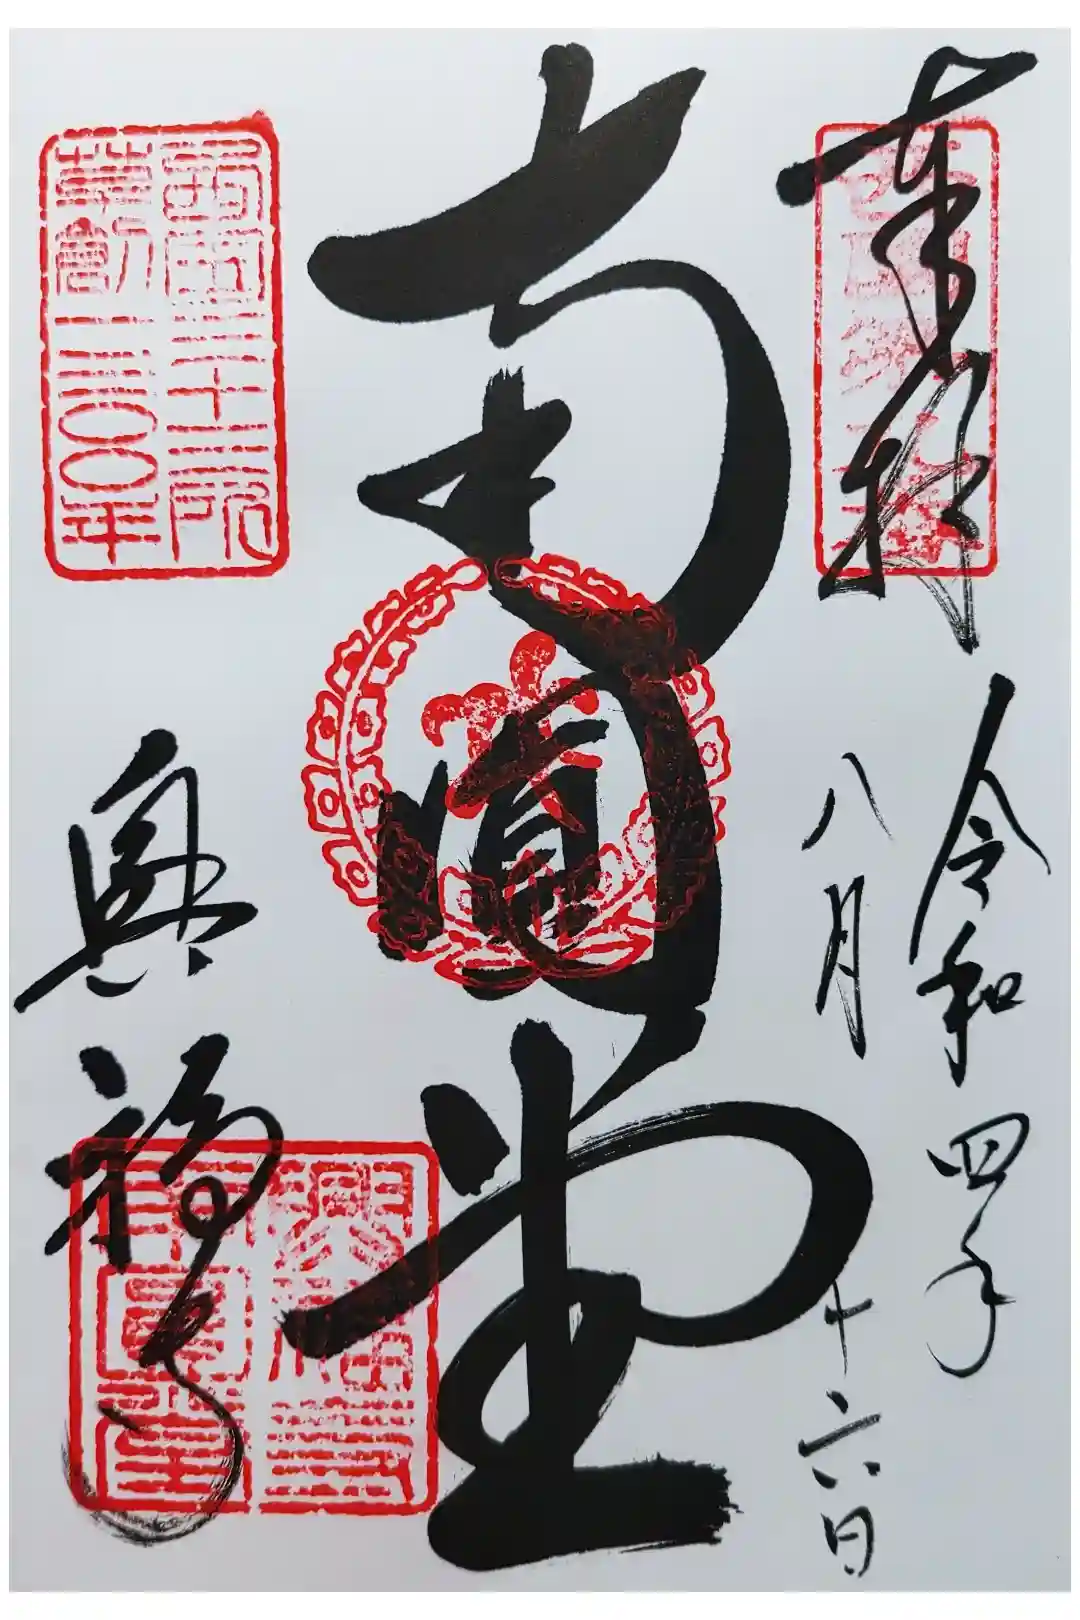 奉拝
令和四年
八月十六日
南円堂
興福寺
西国三十三所
草創一三〇〇年
興福寺
南円堂